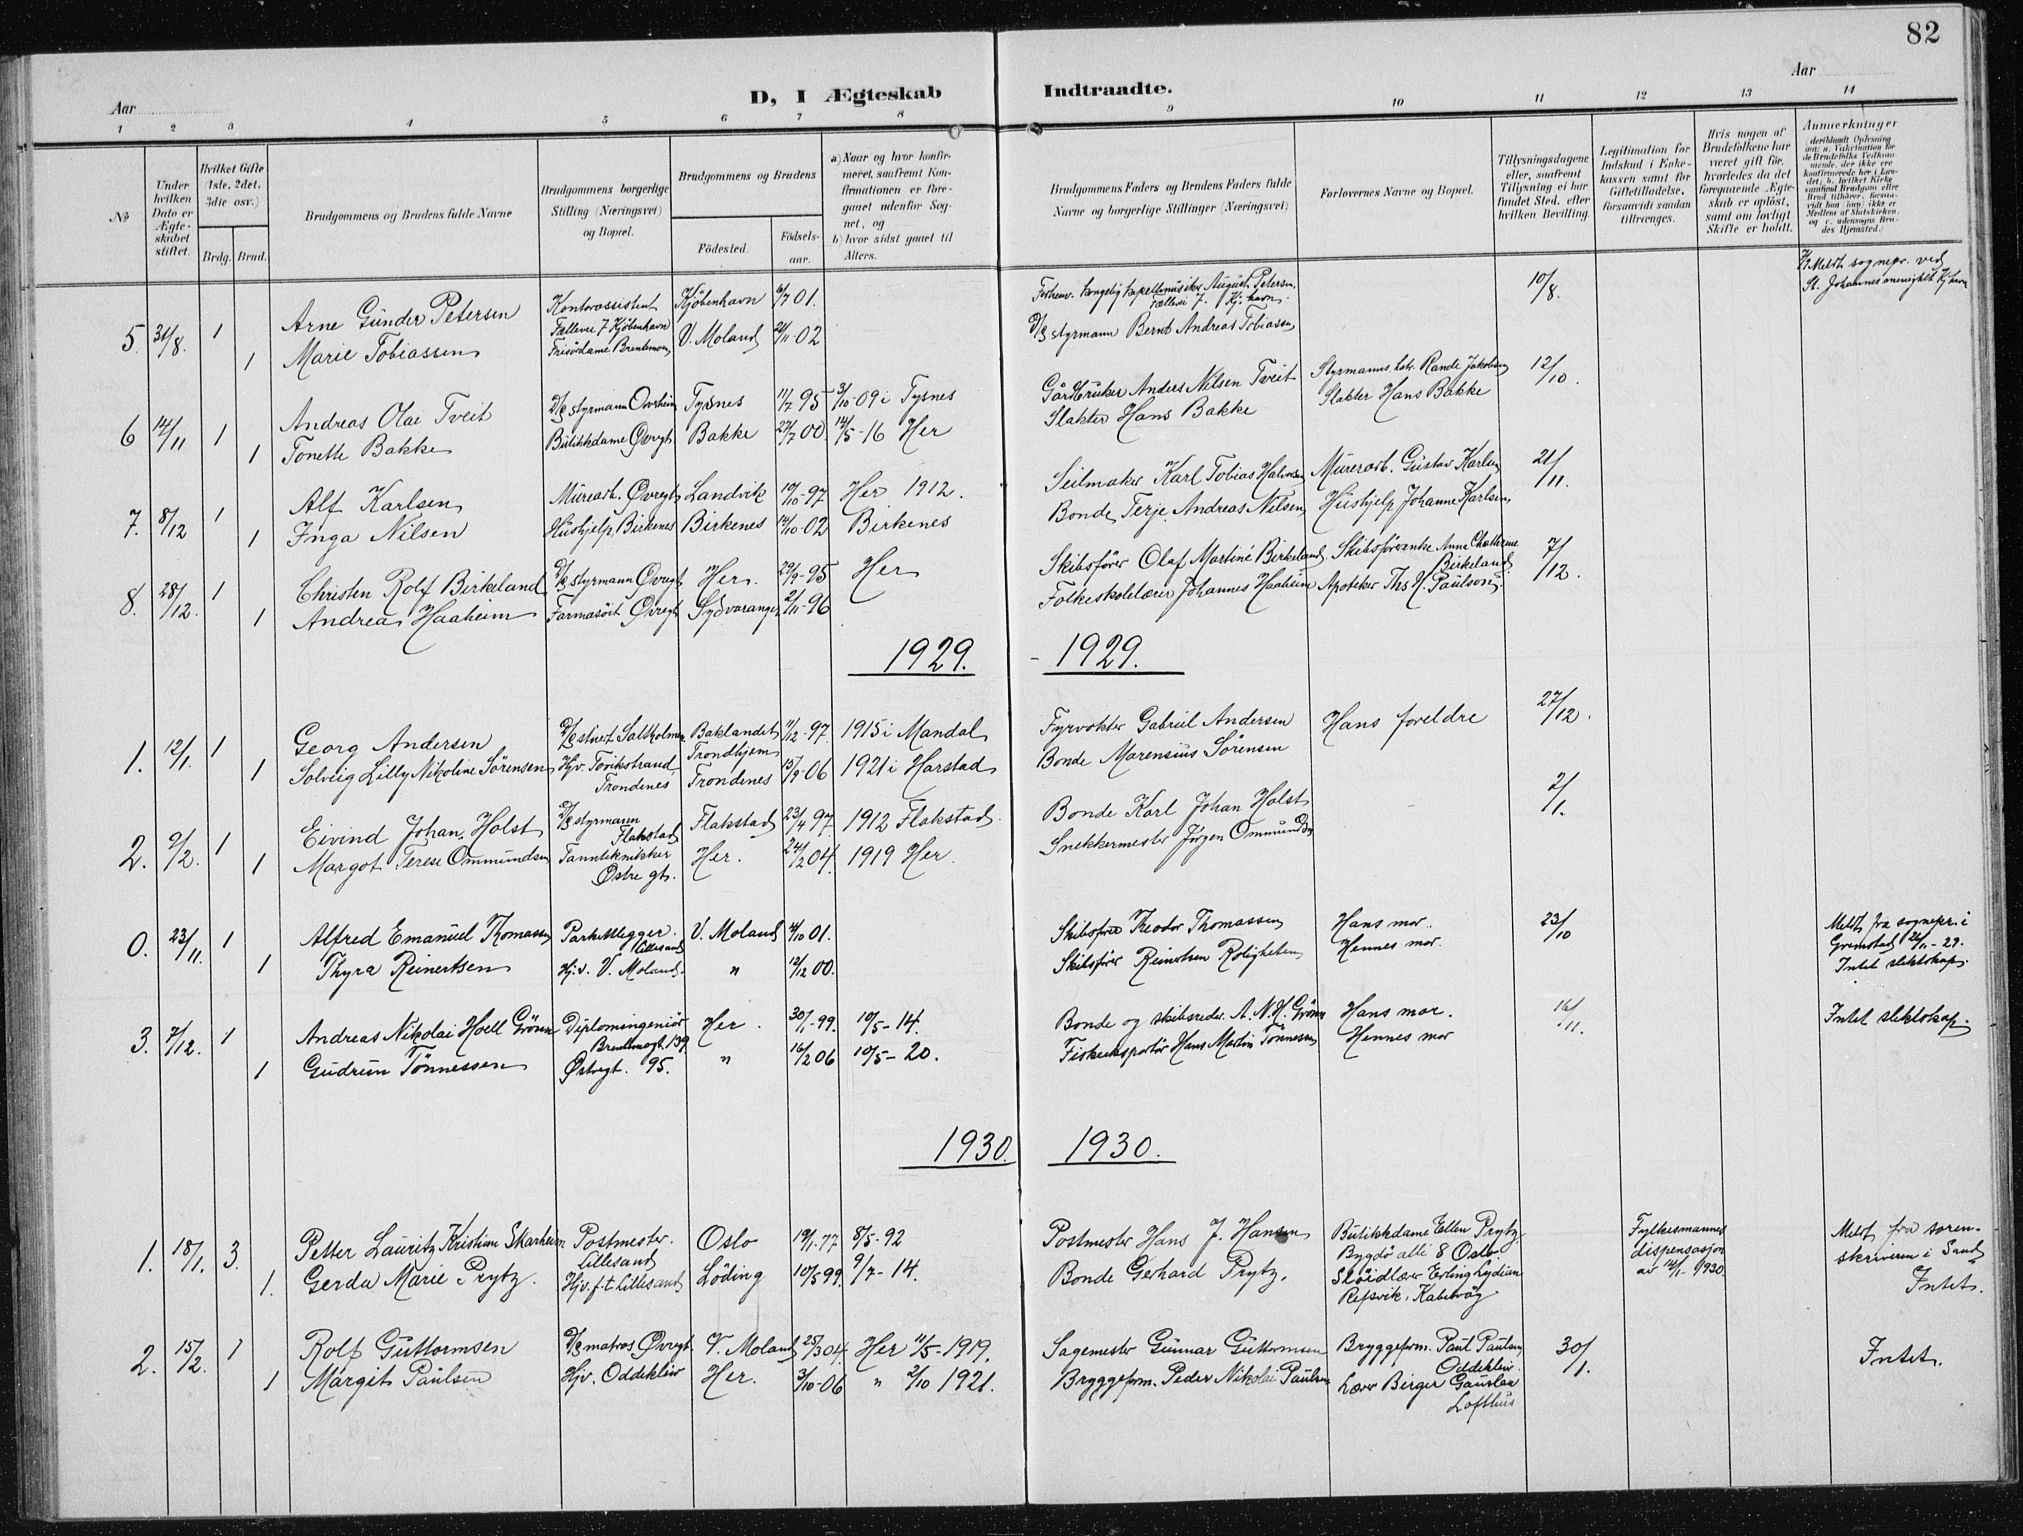 82
Aar
D, I Ægteskab Indtraadte.
Aar
1 2 3 4 5 6 7 8 9 10 11 12 13 14
No
Under hvilken Dato er Ægteskabet stiftet.
Hvilket Gifte (1ste, 2det, 3die osv.)
Brdg. Brud.
Brudgommens og Brudens fulde Navne
Brudgommens borgerlige Stilling (Næringsvei) og Bopæl.
Brudgommens og Brudens
Födested.
Födsels-aar.
a) Naar og hvor konfirmeret, saafremt Konfirmationen er foregaaet udenfor Sognet, og
b) hvor sidst gaaet til Alters.
Brudgommens Faders og Brudens Faders fulde Navne og borgerlige Stillinger (Næringsvei)
Forlovernes Navne og Bopæl.
Tillysningsdagene eller, saafremt Tillysning ei har fundet Sted, efter hvilken Bevilling.
Legitimation for Indskud i Enkekassen samt for Giftetilladelse, forsaavidt saadan tiltrænges.
Hvis nogen af Brudefolkene har været gift før, hvorledes da det foregaaende Ægteskab er opløst, samt om lovligt Skifte er holdt.
Anmærkninger
5. 31/8. 1 Arne Günder Petersen Kontorassistent Fællevei 7 Kjøbenhavn Kjøbenhavn 6/7 01. Forhenv. kongelig kapelmusiker August Petersen Fællesvei 7. Kj.havn. 10/8. Meldt sognepr. ved St. Johannes menighet Kj.havn
1 Marie Tobiassen Frisördame Brentemoen V. Moland 21/11-02 D/S styrmann Bernt Andreas Tobiassen
6 14/11 1 Andreas Olai Tveit D/S styrmann Tysnes 11/7 95 3/10-09 i Tysnes Gårdbruker Anders Nilsen Tveit Styrmanns Rande Jakobsen 12/10.
1 Tonette Bakke Butikkdame Øvregt. Bakke 27/7 00. 14/5-16 Her Slakter Hans Bakke Slakter Hans Bakke
7. 8/12 1 Alf Karlsen Murearb. Øvregt. Landvik 19/10-97 Her 1912. Seilmaker Karl Tobias Halvorsen Murerarb. Gustav Karlsen 21/11.
1 Inga Nilsen Hushjelp, Birkenes Birkenes 14/10-02 Birkenes Bonde Terje Andreas Nilsen Hushjelp Johanne Karlsen
8. 28/12. 1 Christen Rolf Birkeland D/S styrmann Øvregt. Her. 29/9-95 Her Skibsfører Olaf Martine Birkeland Skibsførerenke Anna Birkeland. 7/12.
1 Andrea Haaheim Farmasöit Øvregt. Sydvaranger 2/11-96 Folkeskolelærer Johannes Haaheim Apoteker Ths H. Paulson.
1929. - 1929.
1. 12/1. 1 Georg Andersen Saltholmen Baklandet Trondhjem 11/12-97. 1915 i Mandal Fyrvokter Gabriel Andersen Hans foreldre 27/12.
1 Solveig Lilly Nikoline Sörensen Hjv. Torikstrand Trondenes Trondenes 15/9 06 1921 i Harstad Bonde Marensius Sörensen
2. 9/2. 1 Eivind Johan Holst D/S styrmann Flakstad Flakstad 23/4 97. 1912 Flakstad. Bonde Karl Johan Holst 2/1.
1 Margot Terese Ommundsen Tanntekniker Østre gt. Her. 24/2 04. 1919 Her. Snekkermester Jörgen Ommundsen
0. 23/11. 1 Alfred Emanuel Thomassen Parkettlegger. Lillesand V. Moland 4/10 01. Skibsfører Theodor Thomassen Hans mor. 23/10 Meldt fra sognepr. i Grimstad 26/11-29. Intet slektskap.
1 Thyra Reinertsen Hjv. V. Moland. " 12/12 00. Skibsfører Reinertsen Roligheten Hennes mor.
3. 7/12. 1 Andreas Nikolai Hoell Grönn Diplomingeniör Her. 30/1-99. 10/5-14. Bonde og skibsreder A. N. H. Grönn Hans mor. 16/11. Intet slektskap.
1 Gudrun Tönnessen Østregt. 95. " 16/2 06 10/5-20. Fiskeeksportör Hans Martin Tönnessen Hennes mor
1930. 1930.
1. 18/1. 3. Petter Lauritz Kristian Skarheim Postmester. Lillesand Oslo 19/1-77 8/5-92 Postmester Hans J. Hansen Butikkdame Ellen Prytz. Bygdö allé 8 Oslo Fylkesmannens dispensasjon av 14/1-1930. Meldt fra sorenskriveren i Sand Intet.
1. Gerda Marie Prytz. Hjv. f.t. Lillesand Löding 10/5 99. 9/7-14. Bonde Gerhard Prytz. Slöidlærer Erling Lydian Refsvik. Kabelvåg.
2. 15/2. 1 Rolf Guttormsen D/S matros Øvregt. V. Moland 25/3 04. Her 11/5-1919. Sagmester Gunnar Guttormsen Bryggeform. Paul Paulsen Oddekleiv. 30/1. Intet.
1 Margit Paulsen Hjv. Oddekleiv Her. 3/10-06 " 2/10 1921. Bryggeform. Peder Nikolai Paulsen Lærer Birger Gauslaa Lofthus